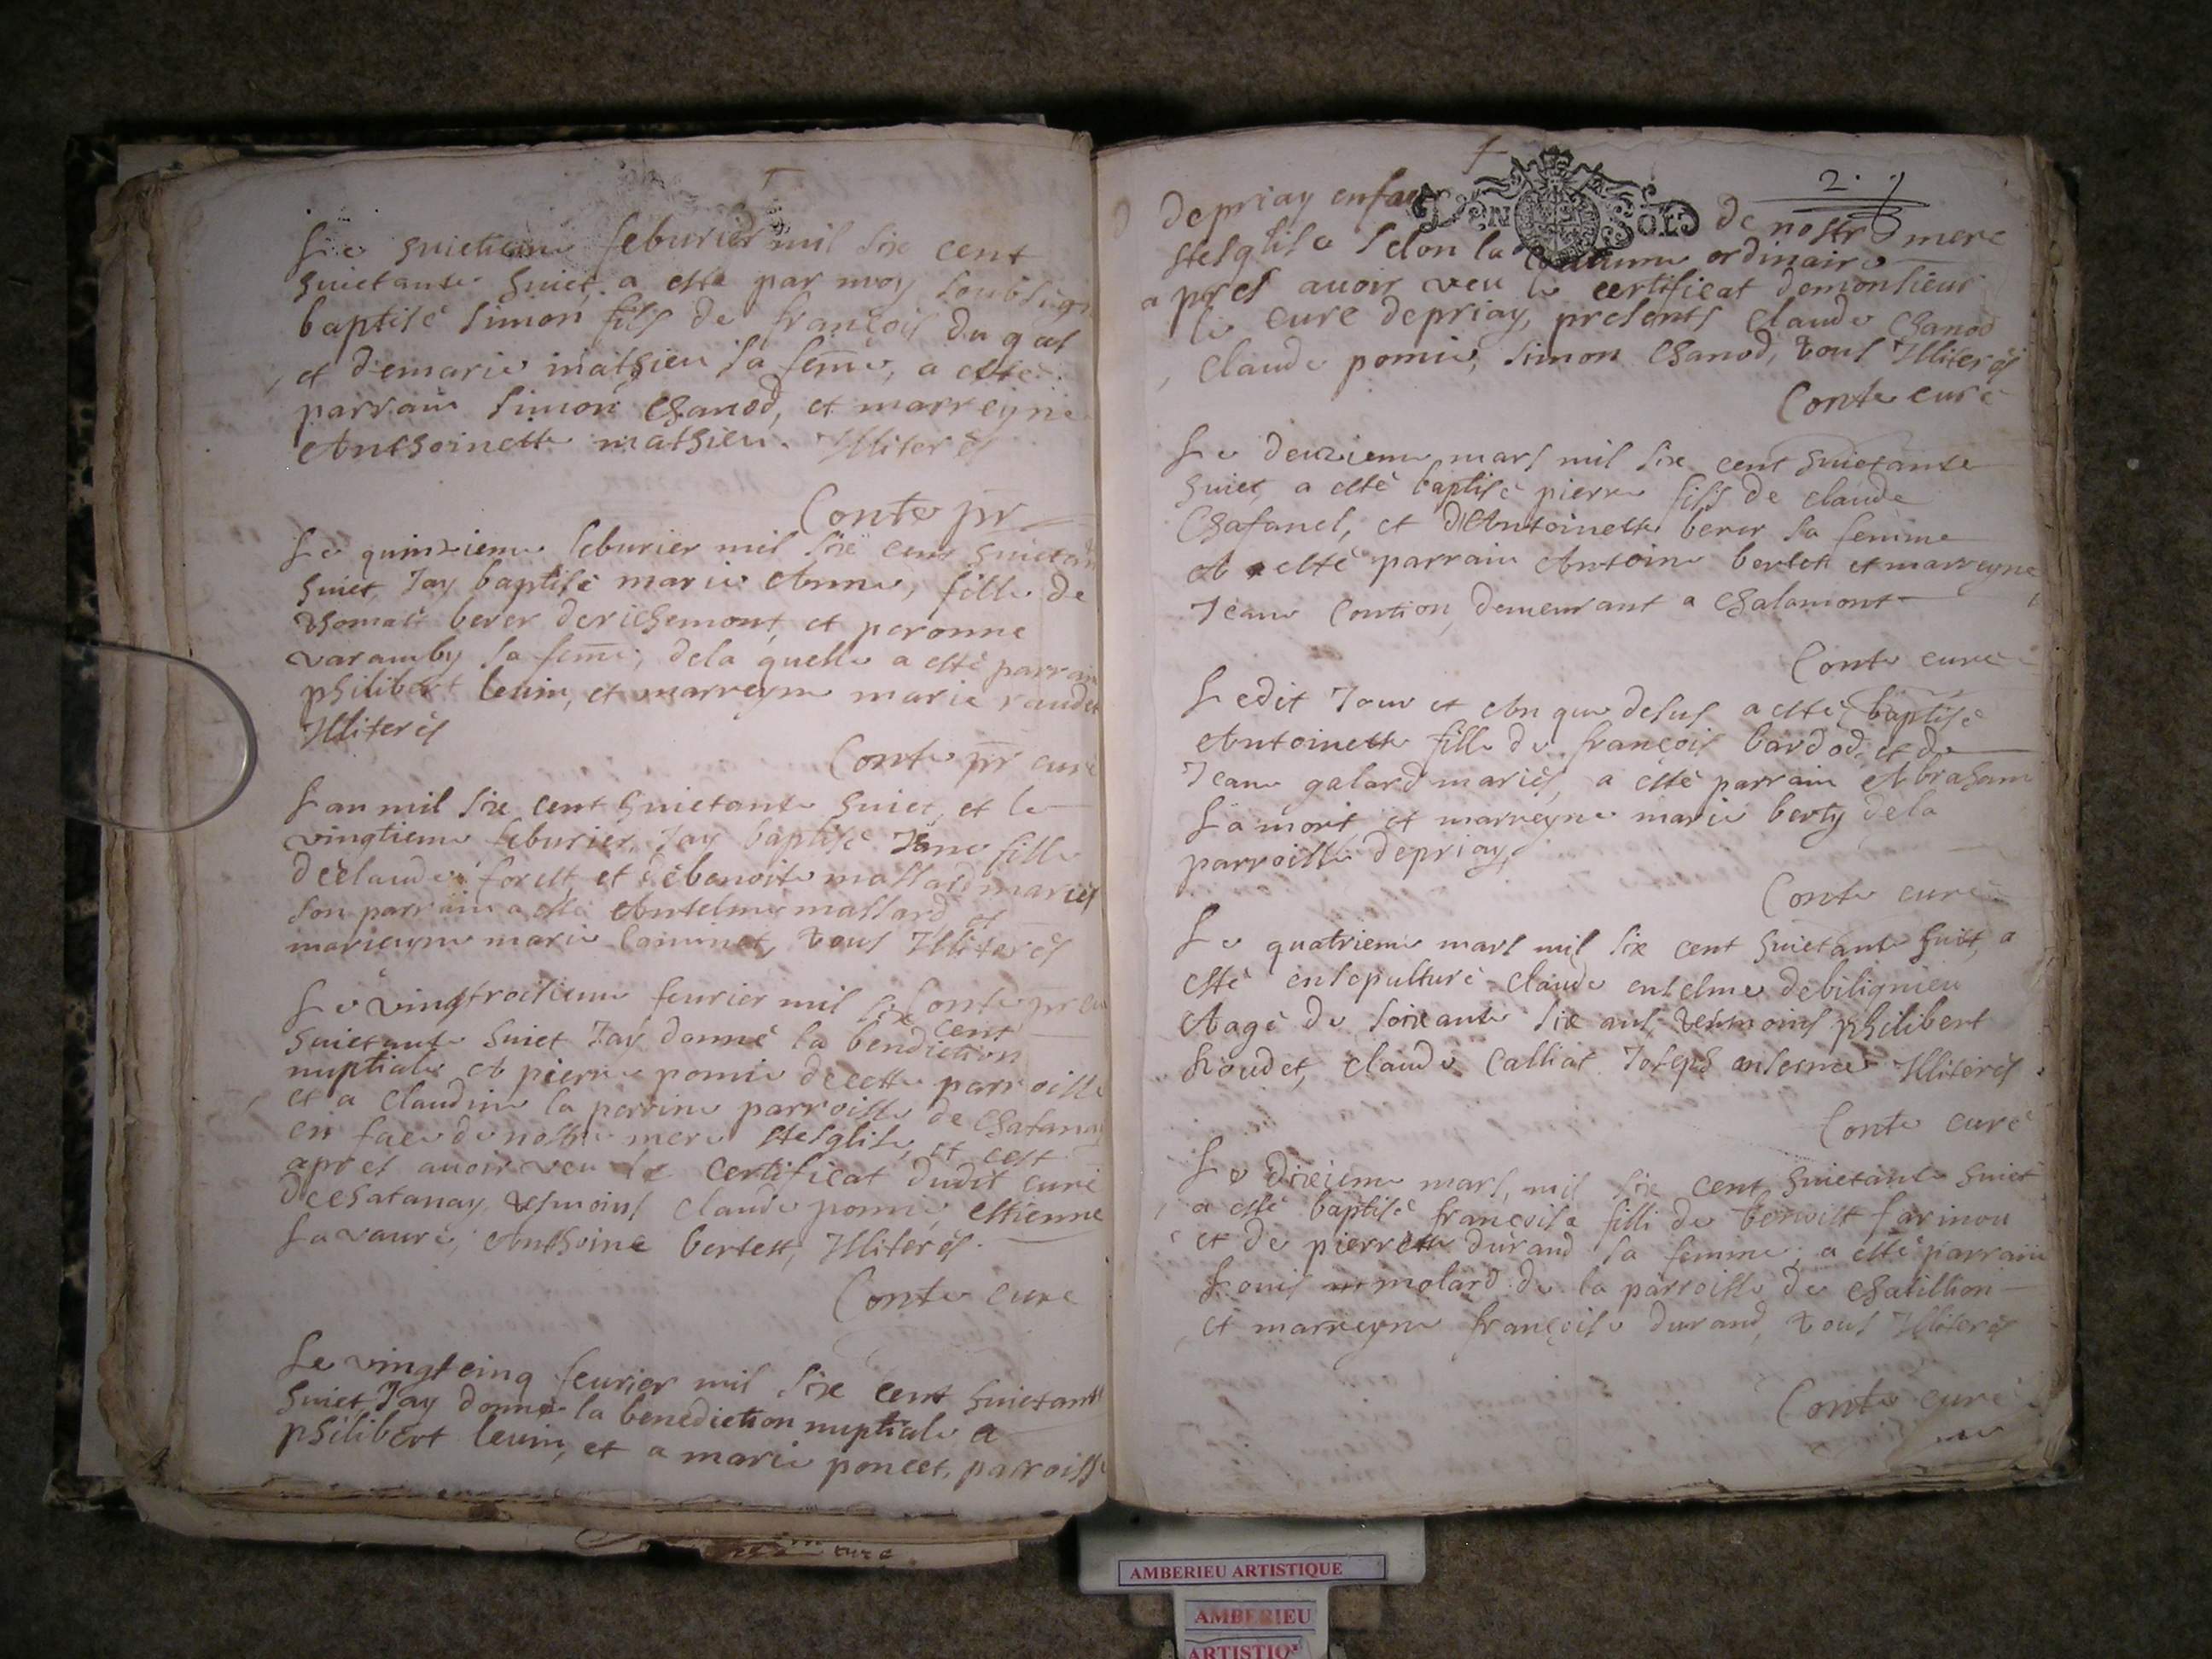 Le huictiem feburier mil six cent
huictante huict, a esté par moy soubsig
baptisé simon fils de françois du gas
et demarie mathieu sa feme, a esté
parrain simon chanod, et marreyne
Anthoinette mathieu. Illiterés
Conte pr
Le quinziem feburier mil six cent huictan
huict, Jay baptisé marie Anne, fille de
thomas berer derichemont, et peronne
varamby sa feme, dela quelle a esté parrain
philibert leuin, et marreyne marie raudet
Illiterés
Conte pr curé
Lan mil six cent huictante huict, et le
vingtiem feburier Jay baptisé Jane fille
declaude forest et debenoite mallard mariés
son parrain a esté Antelme mallard et
marieyne marie Cominet, tous Illiterés
Conte pr cu
Le vingtroisiem feurier mil six cent
huictante huict Jay donné la benediction
nuptiale A pierre pomie decette parroisse
et a Claudine la perrine parroisse de Chatanay
en face de nostre mere steglise, et cest
apres auoir veu le certificat dudit curé
dechatanay tesmoins Claude pomie, estienne
Lavaure, Anthoine bertett, Illiterés.
Conte curé
Le vingt cinq feurier mil six cent huictante
huict Jay donné la benediction nuptiale a
philibert leuin, et a marie poncet, parroisse
2.
depriay enface de nostre mere
steglise selon la Coutume ordinaire
DEN SOLS
apres auoir veu le certificat demonsieur
le curé depriay, presents claude Chanod
Claude pomie, simon Chanod, tous Illiterés
Conte curé
Le deuziem mars mil six cent huictante
huict, a esté baptisé pierre fils de claude
Chafanel, et dAntoinette berer sa femme
A esté parrain Antoine bertet et marreyne
Jeane Contion, demeurant a Chalamont
Conte curé
Ledit Jour et An que desus a esté baptisé
Antoinette fille de françois bardod, et de
Jeane galard mariés, a esté parrain Abraham
Lamort, et marreyne marie berty dela
parroisse depriay
Conte curé
Le quatriem mars mil six cent huictante huit, a
esté ensepulturé Claude entelme debilignieu
Aagé de soixante six ans, tesmoins philibert
Roudet, claude Calliat Joseph anselme Illiterés
Conte curé
Le dixiem mars, mil six cent huictante huict
a esté baptisé françoise filli de benoist farinou
et de pierrette durand sa femme, a esté parrain
Louis molard de la parroisse de chatillion
et marreyne françoise durand, tous Illiterés
Conte curé
AMBERIEU ARTISTIQUE
AMBERIEU
ARTISTIQ